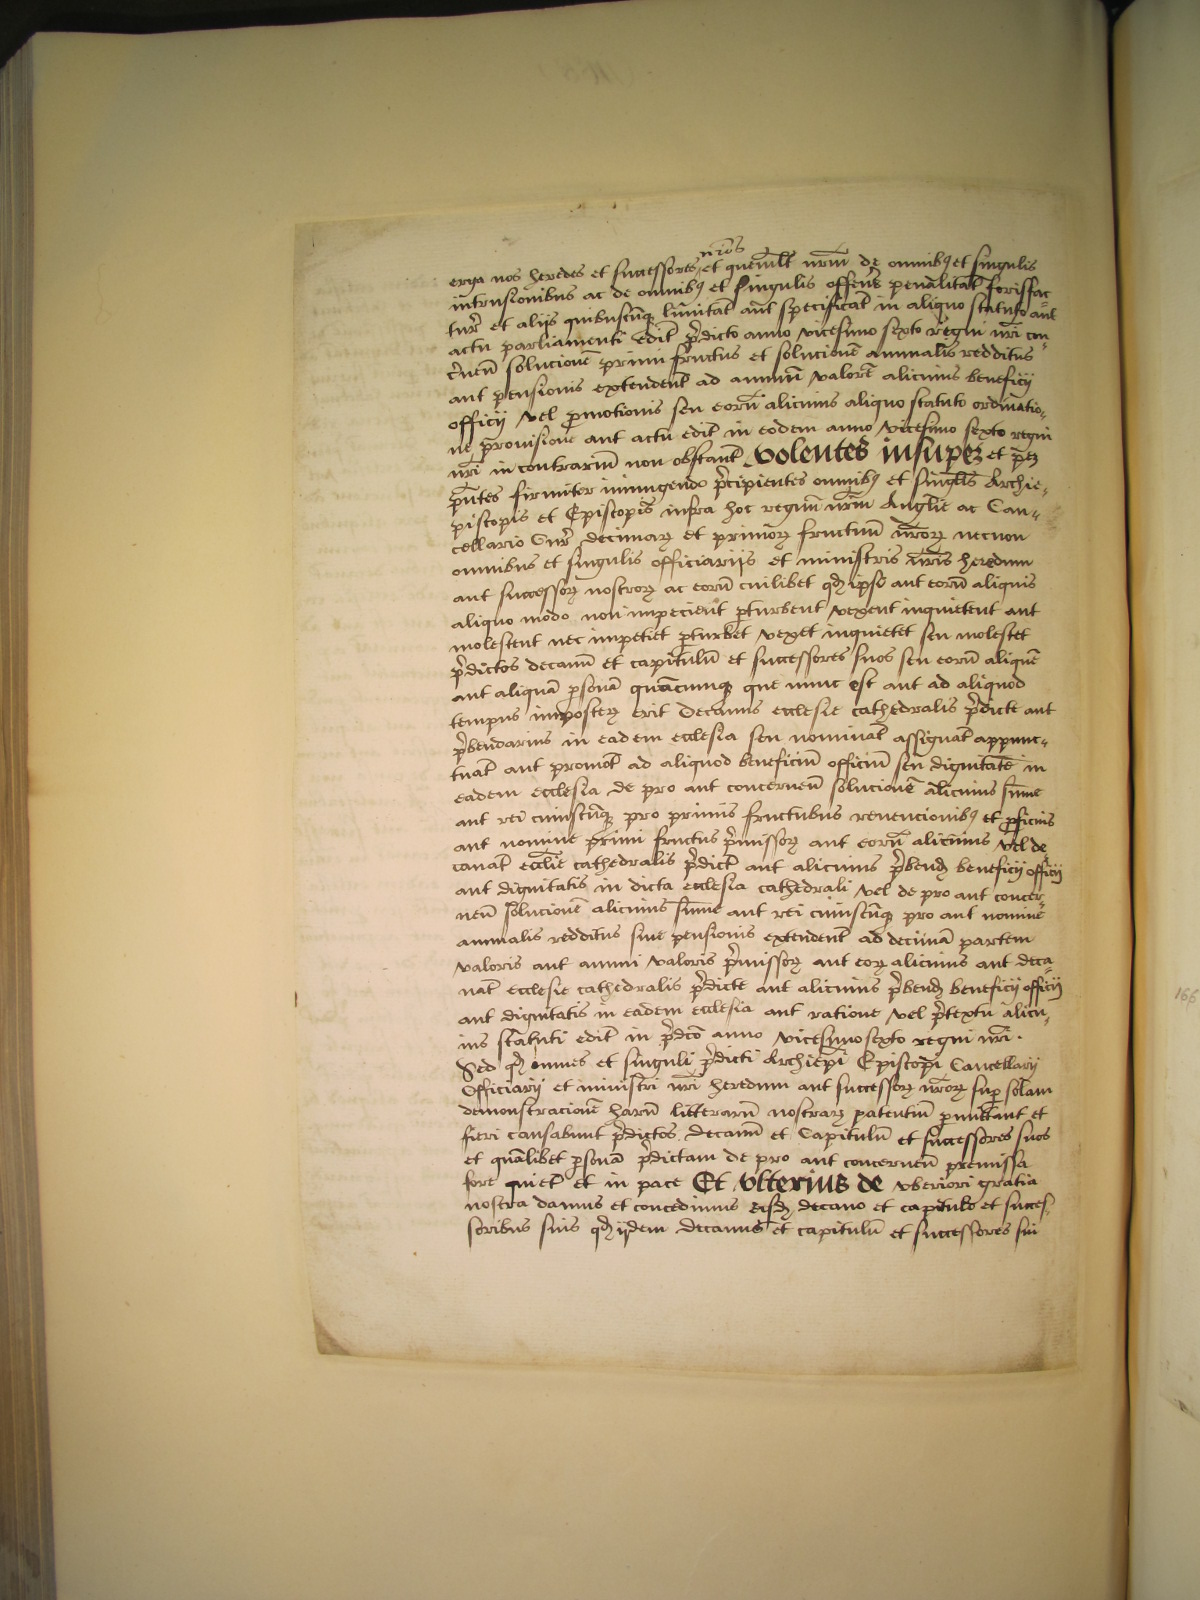 nr̃os
erga nos heredes et successores et quemlt̃ nrm̃ de omnibȝ et singulis
intrusionibus ac de omnibȝ et singulis offens̃ penalitat̃ forisfac
tur̃ et alijs quibuscũqȝ limitat̃ aut specificat̃ in aliquo statuto aut
actu parliamenti edit̃ p̃dicto anno vicesimo sexto regni nr̃i con
c̃nen̄ solucionē primi fructus et solucionē annualis redditus
aut pensionis extendent̃ ad annuū valorē alicuius beneficij
officij vel ꝑmotionis seu eorū alicuius aliquo statuto ordinatio-
ne ꝓuisione aut actu edit̃ in eodem anno vicesimo sexto regni
nr̃i in contrariū non obstant̃ Volentes insuper et ꝑ eȝ
p̃ntes firmiter iniungendo p̃cipientes omnibȝ et singl̃is Archie-
piscopis et Episcopis infra hoc regnū nrm̃ Anglie ac Can-
cellario Cur̃ decimaꝝ et primoꝝ fructuū nr̃oꝝ necnon
omnibus et singulis officiarijs et ministris nr̃is heredum
aut successoꝝ nostroꝝ ac eorū cuilibet qđ ipsi aut eorū aliquis
aliquo modo non impecient ꝑturbent vexent inquietent aut
molestent nec impetiet ꝑturbet vexet inquietet seu molestet
p̃dictos decanū et capitulū et successores suos seu eorū aliquē
aut aliquā ꝑsonā quācumqȝ que nunc est aut ad aliquod
tempus imposteꝝ erit decanus ecclesie cathedralis p̃dicte aut
p̃bendarius in eadem ecclesia seu nominat̃ assignat̃ appunc-
tuat̃ aut promot̃ ad aliquod beneficiū officiū seu dignitatē in
eadem ecclesia de pro aut concernen̄ solucionē alicuius sum̄e
aut rei cuiuscũqȝ pro primis fructubus reuencionibȝ et ꝓficuis
aut nomine primi fructus p̃missoꝝ aut eorū alicuius vel de
canat̃ eccl̃ie cathedralis p̃dict̃ aut alicuius p̃bend̃ beneficij officij
aut dignitatis in dicta ecclesia cathedrali vel de pro aut concer-
nen̄ solucionē alicuius sum̄e aut rei cuiuscũqȝ pro aut nomine
annualis redditus siue pensionis extendent̃ ad decimā partem
valoris aut annui valoris p̃missoꝝ aut eoꝝ alicuius aut deca
nat̃ ecclesie cathedralis p̃dicte aut alicuius p̃bend̃ beneficij officij
aut dignitatis in eadem ecclesia aut ratione vel p̃textu alicu-
ius statuti edit̃ in p̃dc̃o anno vicesimo sexto regni nr̃i .
Sed qđ omnes et singuli p̃dicti Archiep̃i Episcopi Cancellarij
Officiarij et ministri nr̃i heredum aut successoꝝ nr̃oꝝ suꝑ solam
demonstracionē harū litterarū nostraꝝ patentiū ꝑmittant et
fieri causabunt p̃dictos decanū et Capitulū et successores suos
et quālibet ꝑsonā p̃dictam de pro aut concernen̄ premissa
fore quiet̃ et in pace Et vlterius de vberiori gratia
nostra damus et concedimus eisđ decano et capitulo et succes
soribus suis qđ ijdem decanus et capitulū et successores sui
166